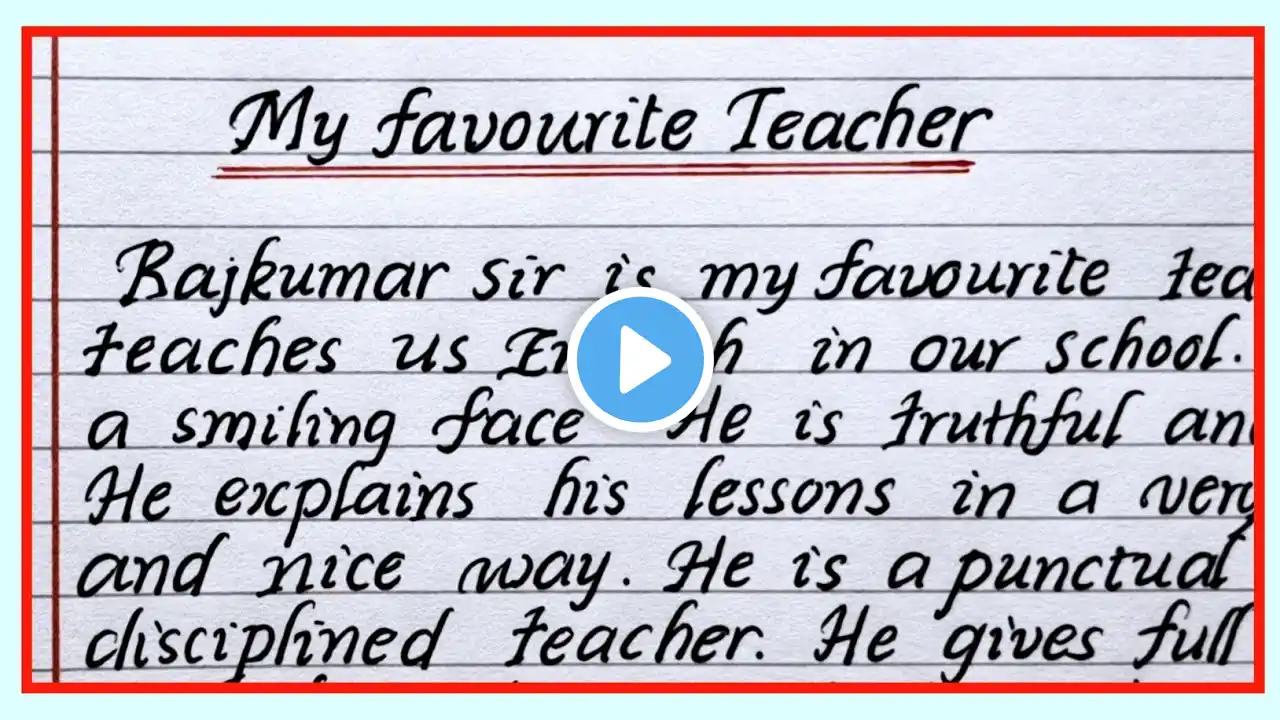 My favourite Teacher
Rajkumar sir is my favourite
teaches us in our school.
a smiling face He is truthful
He explains his lessons in a very
and nice way. He is a punctual
disciplined teacher. He gives full